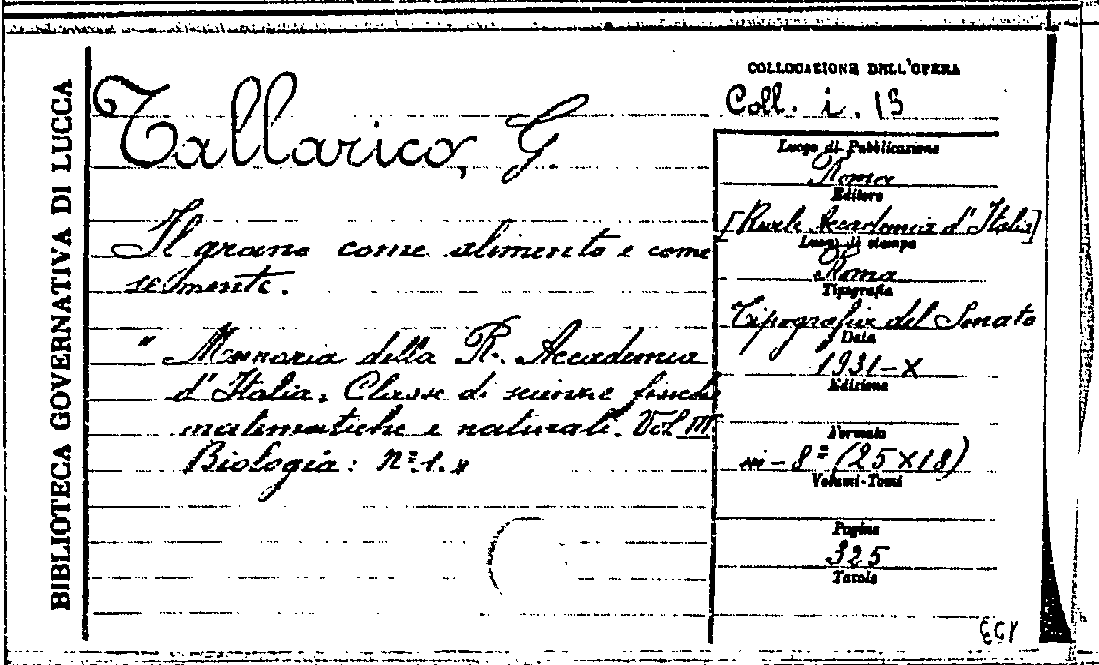 BIBLIOTECA GOVERNATIVA DI LUCCA
Tallarico, G.
Il grano come alimento e come
semente.
" Memoria della R. Accademia
d'Italia. Classe di scienze fisiche
matematiche e naturali. Vol III
Biologia: Nº 1. "
COLLOCAZIONE DELL'OPERA
Coll. i. 13
Luogo di Pubblicazione
Roma
Editore
[Reale Accademia d'Italia]
Luogo di stampa
Roma
Tipografia
Tipografia del Senato
Data
1931-X
Edizione
Formato
in-8º (25x18)
Volumi-Tomi
Pagine
325
Tavole